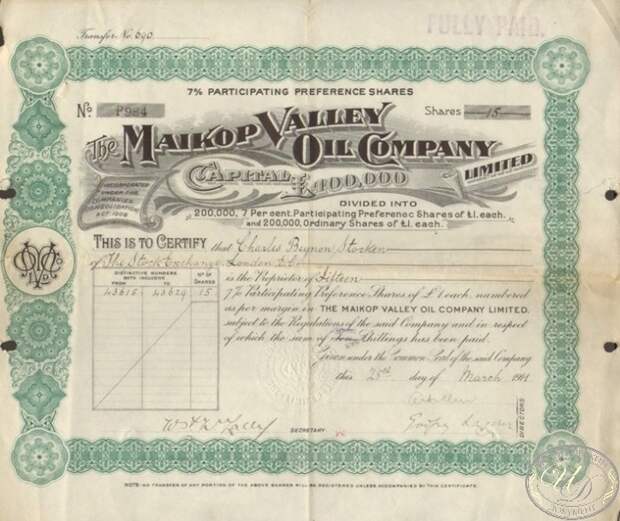 Transfer No. 690
FULLY PAID.
7% PARTICIPATING PREFERENCE SHARES
No. P984
Shares 15
The MAIKOP VALLEY
OIL COMPANY
LIMITED
CAPITAL £400,000
INCORPORATED
UNDER THE
COMPANIES
CONSOLIDATION
ACT 1908
DIVIDED INTO
200,000, 7 Per cent. Participating Preferenc Shares of £1. each.
and 200,000 Ordinary Shares of £1. each.
THIS IS TO CERTIFY that Charles Beynon Stocken
of The Stock Exchange, London E.C.
DISTINCTIVE NUMBERS
BOTH INCLUSIVE
NO OF
SHARES
FROM TO
43615 43629 15
is the Proprietor of Fifteen
7% Participating Preference Shares of £1 each, numbered
as per margin in THE MAIKOP VALLEY OIL COMPANY LIMITED,
subject to the Regulations of the said Company and in respect
of which the sum of Shillings has been paid.
Given under the Common Seal of the said Company
this 28th day of March 1911
DIRECTORS
SECRETARY
NOTE: NO TRANSFER OF ANY PORTION OF THE ABOVE SHARES WILL BE REGISTERED UNLESS ACCOMPANIED BY THIS CERTIFICATE.